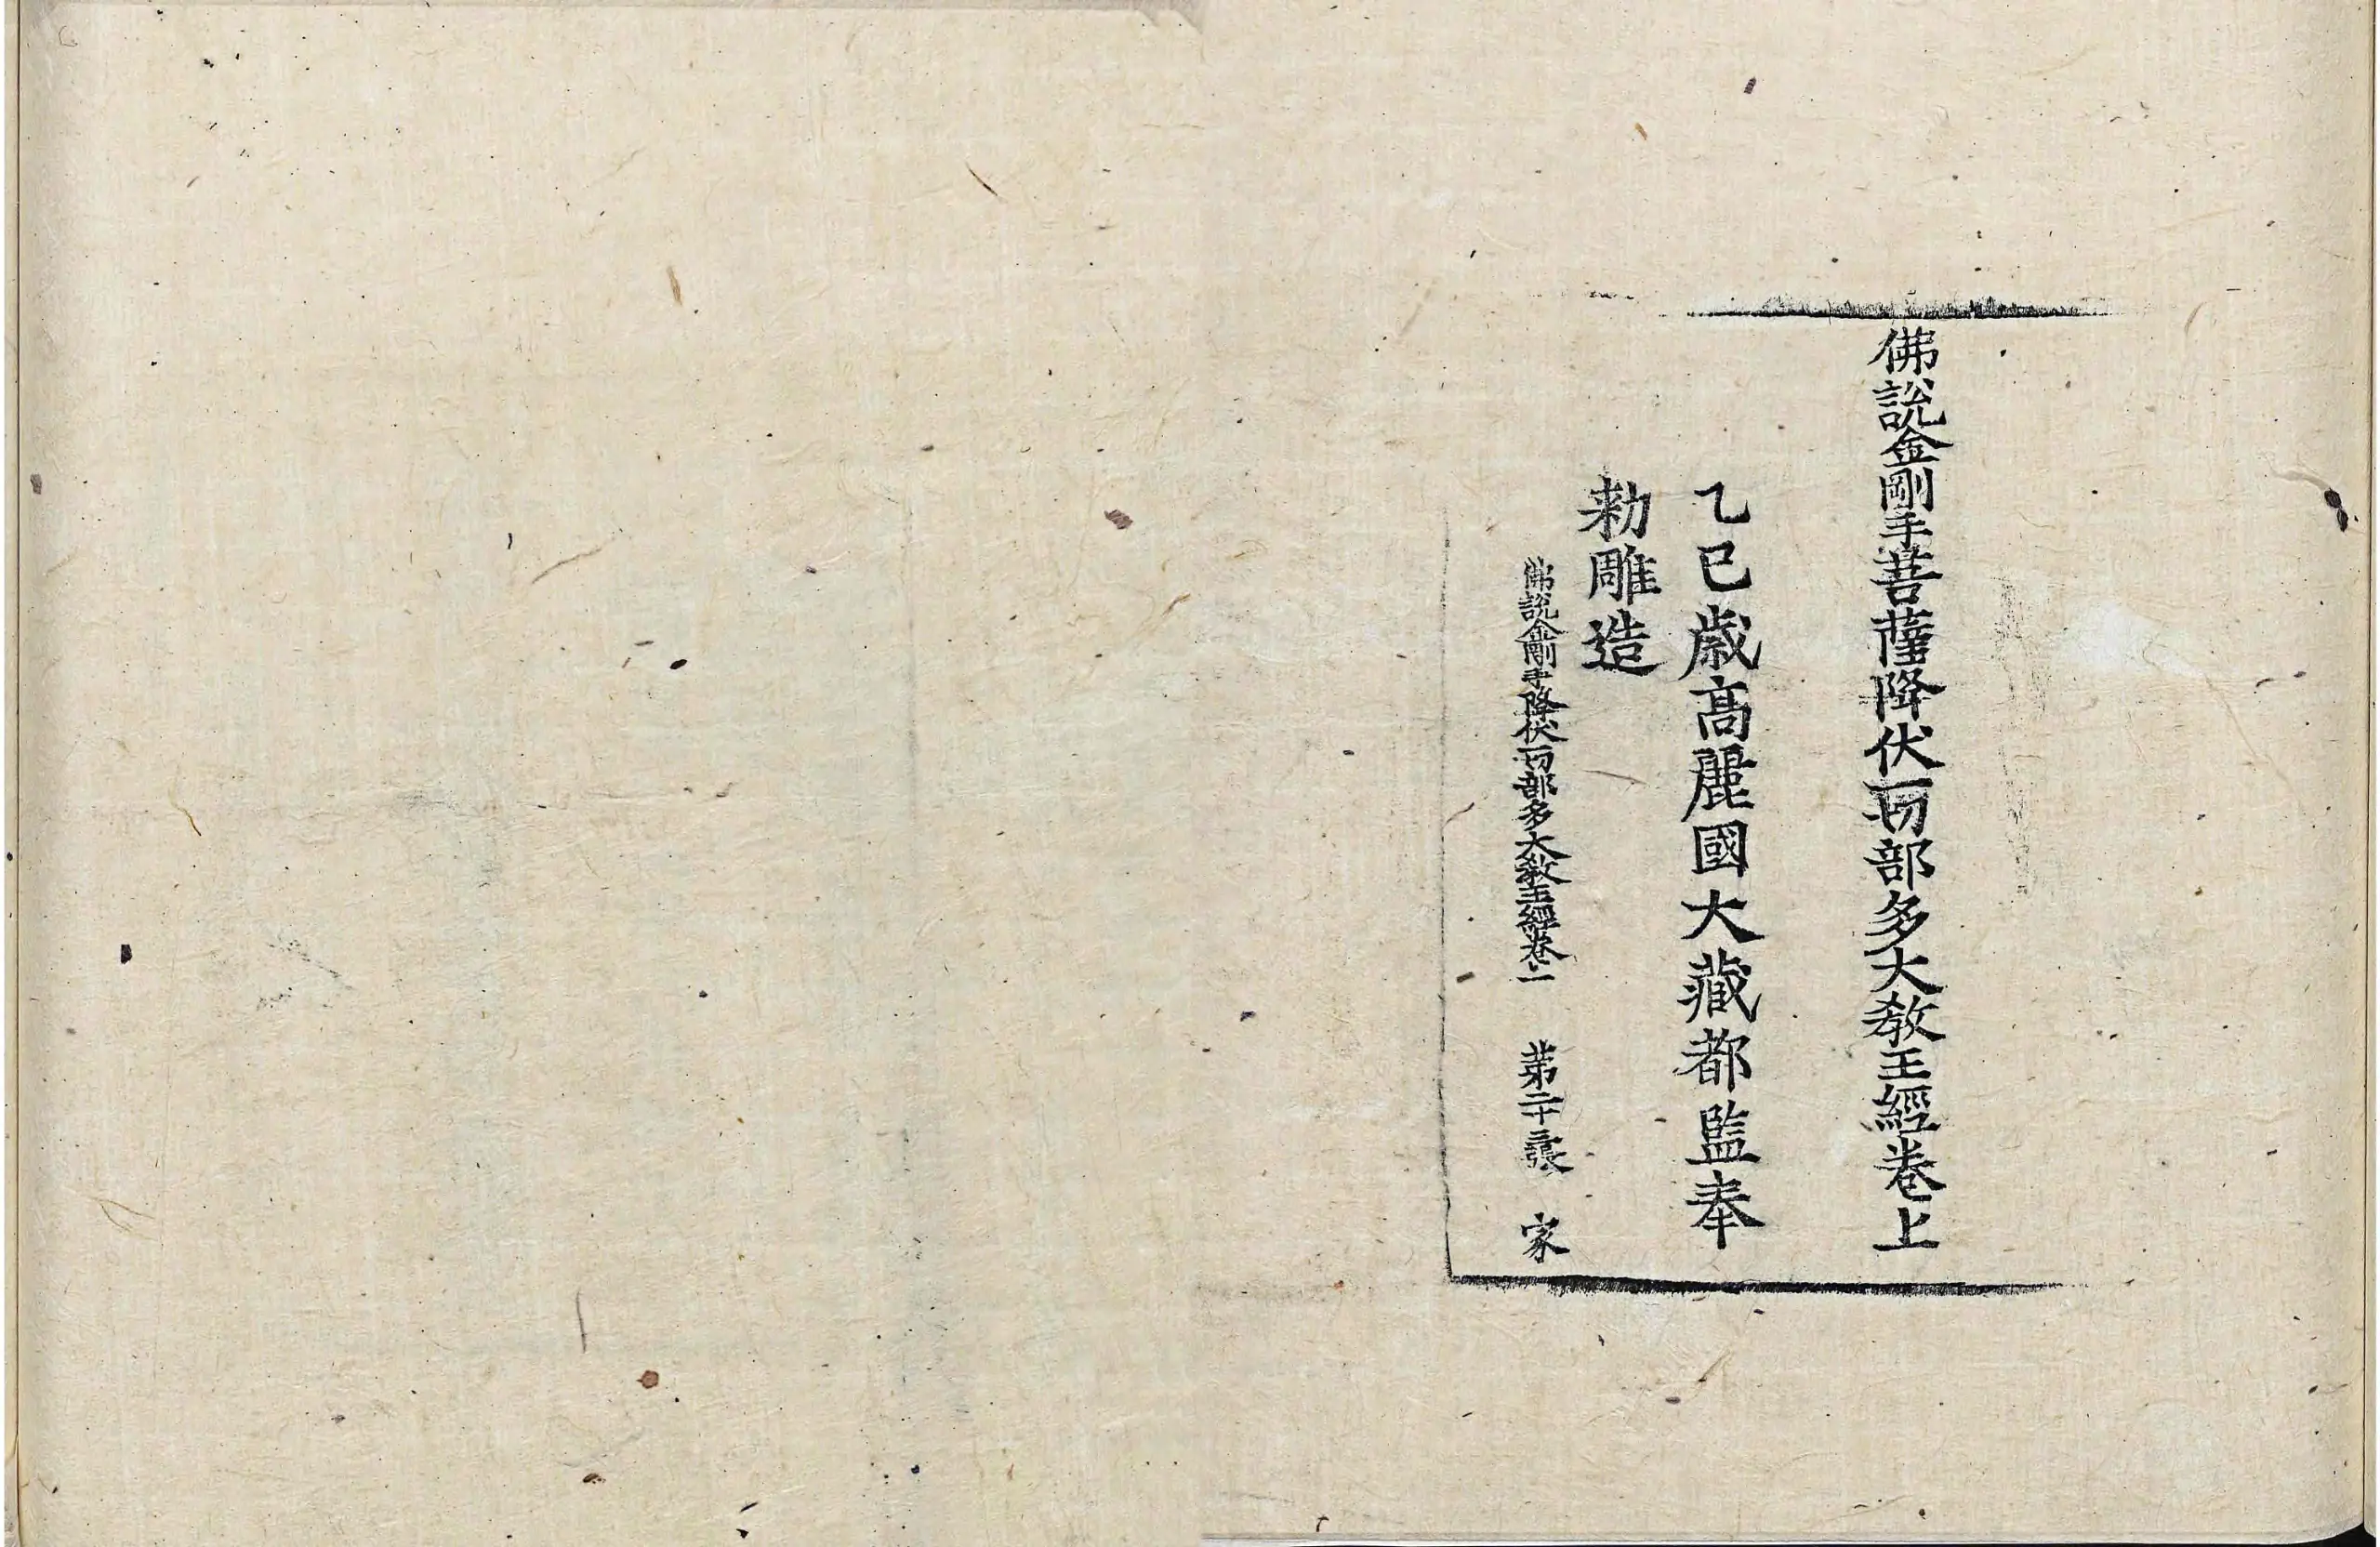 佛說金剛手菩薩降伏一切部多大敎王經卷上
乙巳歲高麗國大藏都監奉
勅雕造
佛說金剛手降伏一切部多大敎王經卷上 第二十三張 家